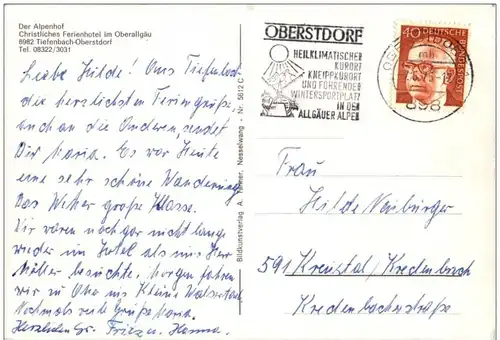 Der Alpenhof
Christliches Ferienhotel im Oberallgäu
8982 Tiefenbach-Oberstdorf
Tel. 08322/3031
Liebe Hilde! Aus Tiefenbach
die herzlichsten Feriengrüße,
auch an die Anderen, sendet
Dir Maria. Es war Heute
eine sehr schöne Wanderung
Das Wetter große Klasse.
Wir waren noch gar nicht lange
wieder im Hotel als uns Herr
Müller besuchte, morgen fahren
wir zu Oma ins Kleine Walsertal.
Nochmals viele Grüße Maria.
Herzlichen Gr. u. Hanna.
Bildkunstverlag A. Nesselwang - Nr. 5612 C
OBERSTDORF
HEILKLIMATISCHER
KURORT
KNEIPPKURORT
UND FÜHRENDER
WINTERSPORTPLATZ
IN DEN
ALLGÄUER ALPEN
898
40 DEUTSCHE
BUNDESPOST
Frau
Hilde Neuburger
591 Kreuztal/Kredenbach
Kredenbacherstraße